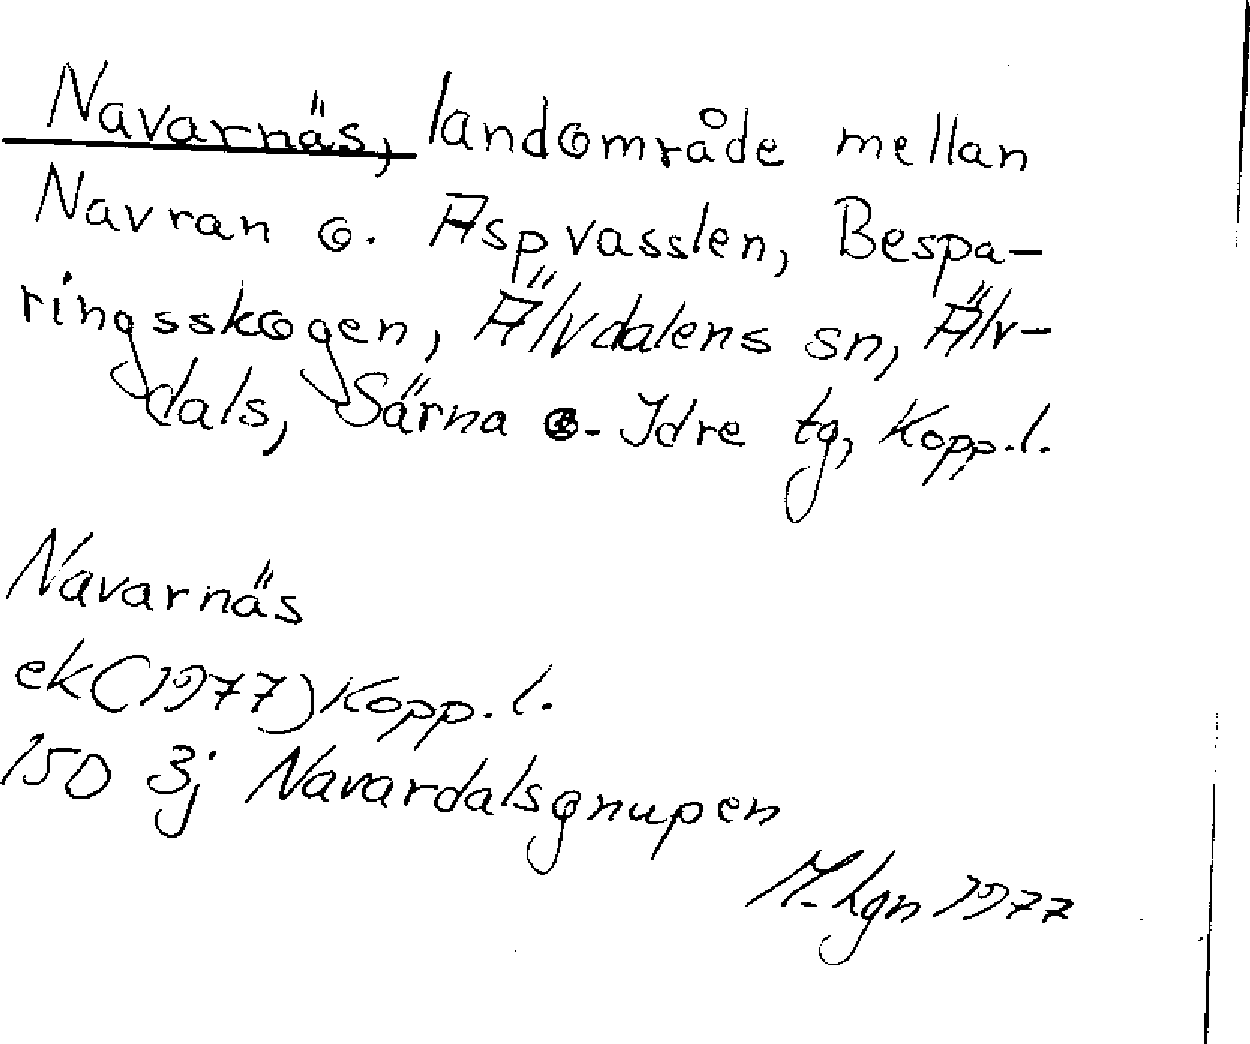 Navarnäs, landområde mellan
Navran o. Aspvasslen, Bespa-
ringsskogen, Älvdalens sn, Älv-
dals, Särna o. Idre tg, Kopp.l.
Navarnäs
ek(1977)Kopp.l.
15D 3j Navardalsgnupen
M-hgn 1977